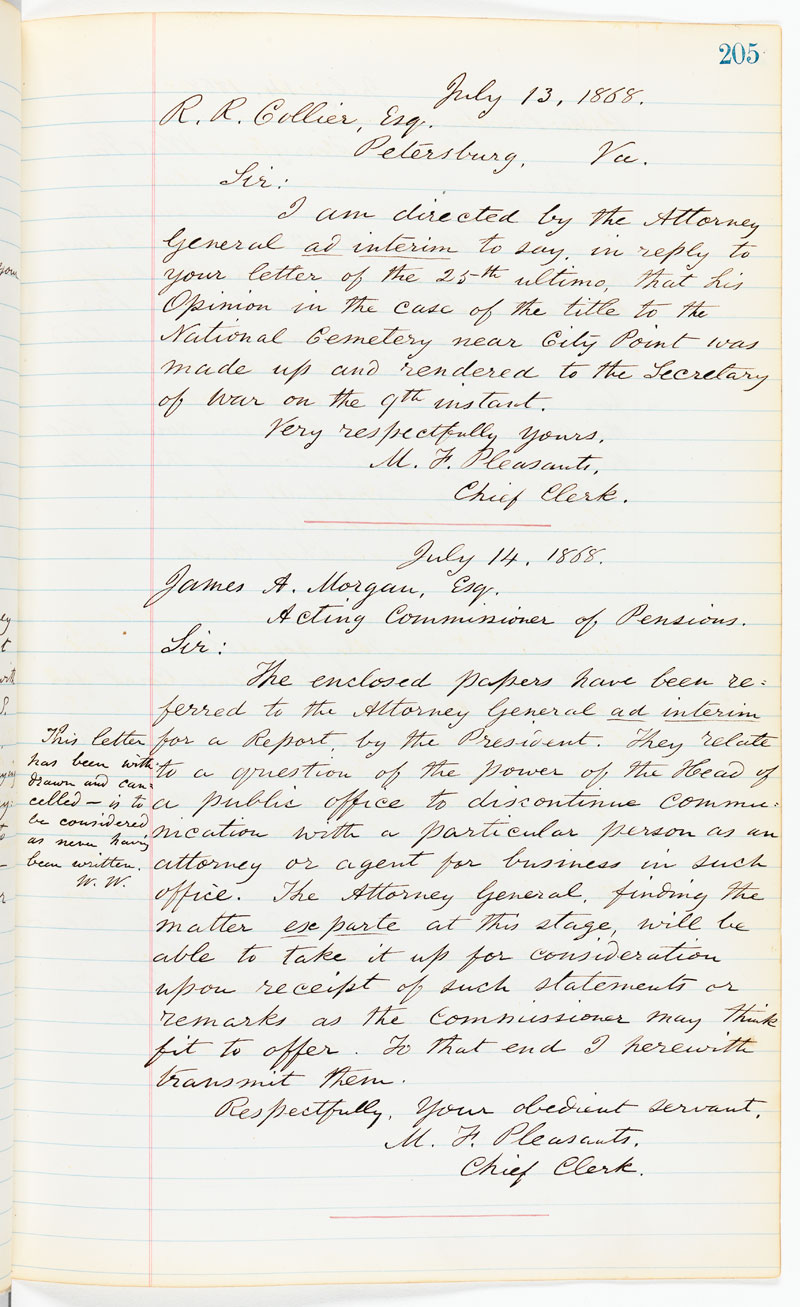 205
July 13, 1868.
R. R. Collier, Esq.
Petersburg, Va.
Sir:
I am directed by the Attorney
General ad interim to say, in reply to
your letter of the 25th ultimo, that his
Opinion in the case of the title to the
National Cemetery near City Point was
made up and rendered to the Secretary
of War on the 9th instant.
Very respectfully yours,
M. F. Pleasants,
Chief Clerk.
July 14, 1868.
James A. Morgan, Esq.
Acting Commissioner of Pensions.
Sir:
The enclosed papers have been re=
ferred to the Attorney General ad interim
for a Report, by the President. They relate
to a question of the power of the Head of
a public office to discontinue commu=
nication with a particular person as an
attorney or agent for business in such
office. The Attorney General, finding the
matter ex parte at this stage, will be
able to take it up for consideration
upon receipt of such statements or
remarks as the Commissioner may think
fit to offer. To that end I herewith
transmit them.
Respectfully, Your obedient servant,
M. F. Pleasants,
Chief Clerk.
This letter
has been with
drawn and can=
celled — is to
be considered
as never having
been written.
W. W.